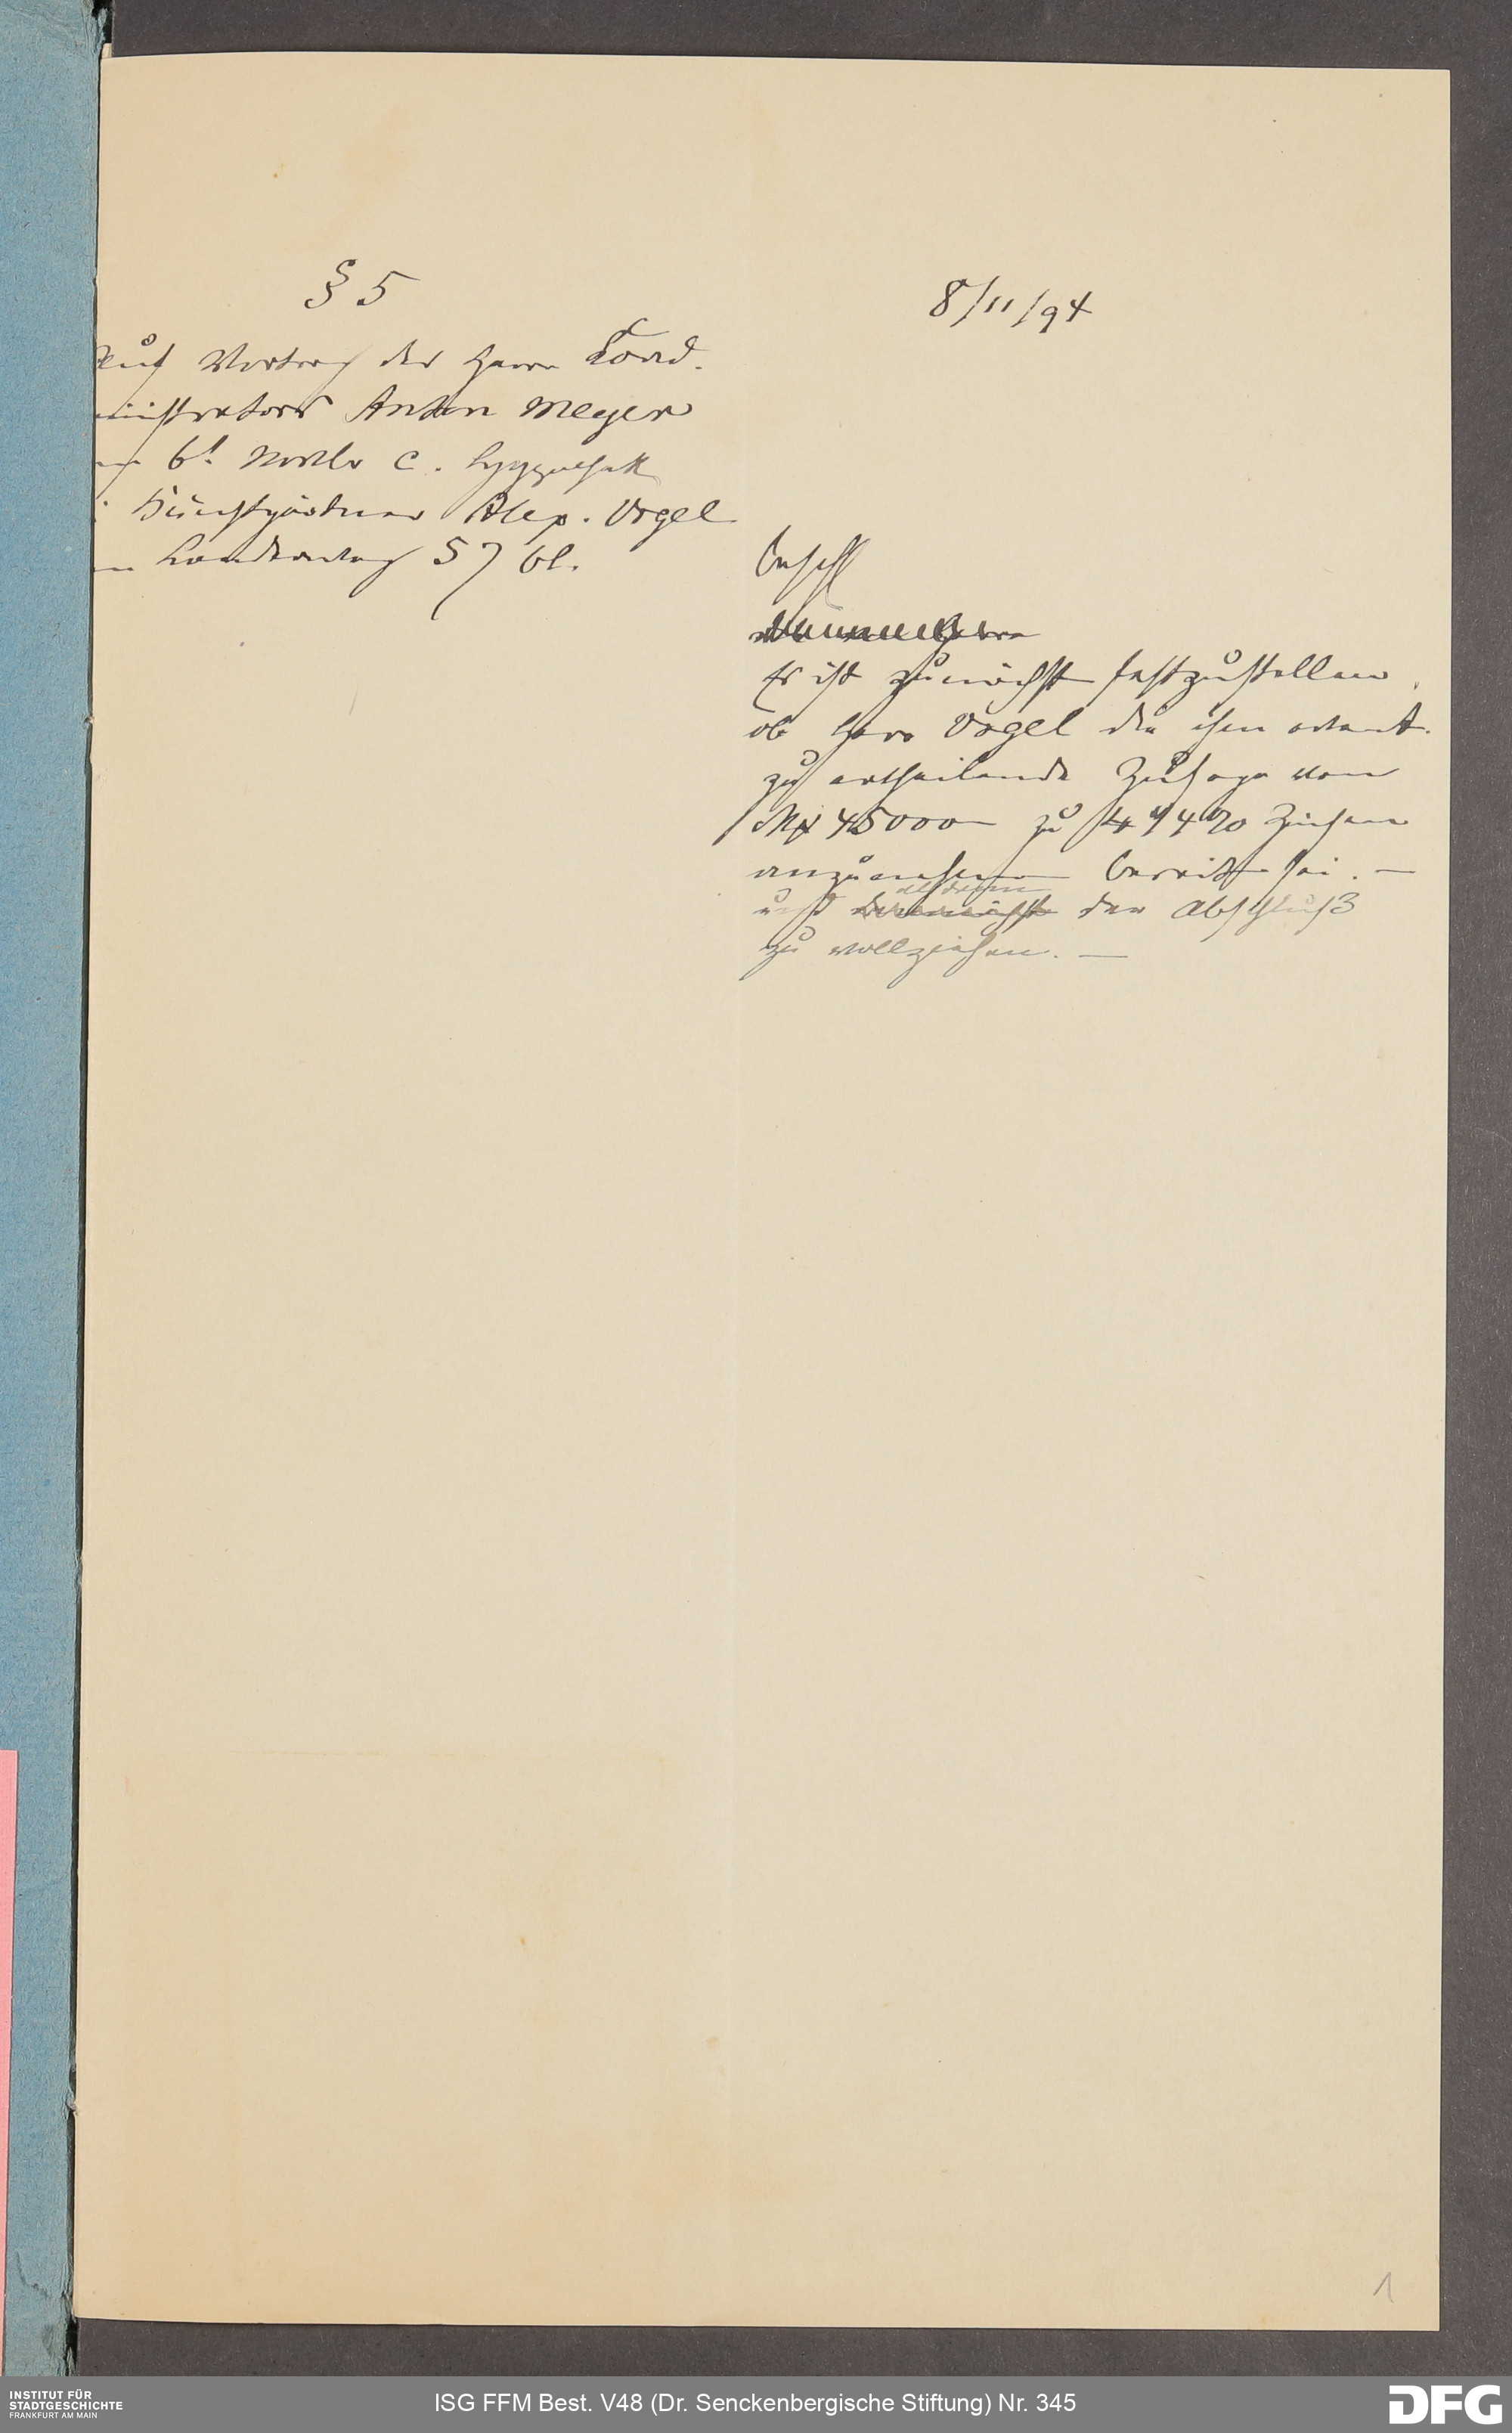 § 5
Auf Vortrag des Herrn Koad.
ministrators Anton Meyer
Hypothek
Kunstgärtner Alex. Vogel
Landanlag 57 bl.
8/11/94
Beschl
Es ist zunächst festzustellen,
ob Herr Vogel die ihm event.
zu ertheilende Zusage von
M 45000 – zu 4 1/4 % Zinsen
anzunehmen bereit sei. –
und alsdann der Abschluß
zu vollziehen. –
1
INSTITUT FÜR
STADTGESCHICHTE
FRANKFURT AM MAIN
ISG FFM Best. V48 (Dr. Senckenbergische Stiftung) Nr. 345
DFG